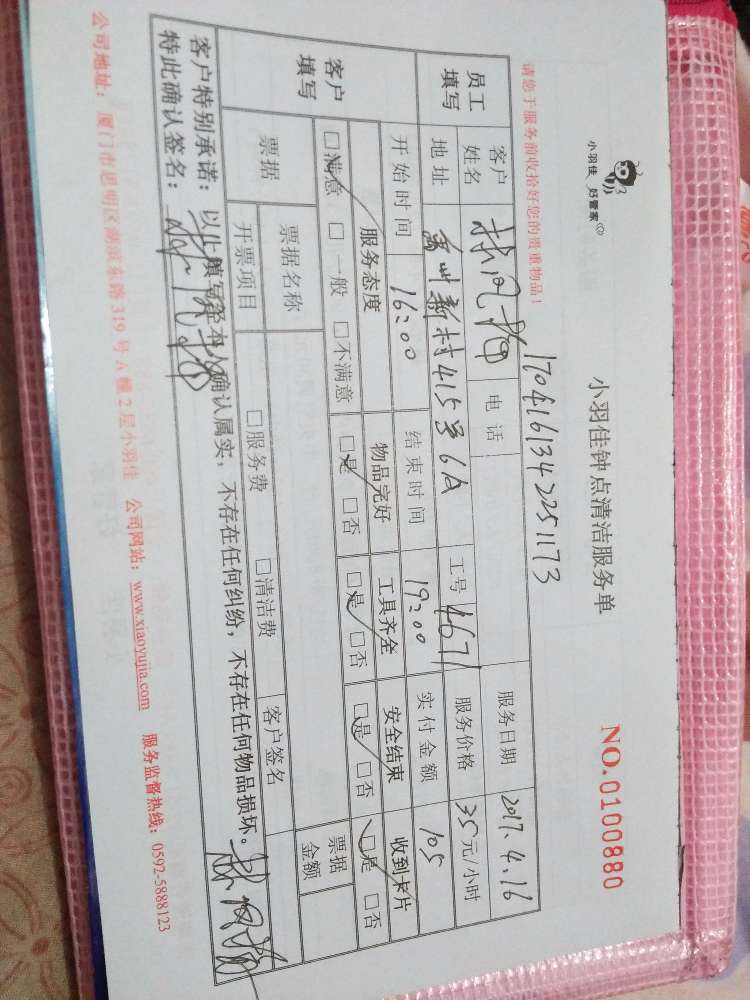 小羽佳 好管家
小羽佳钟点清洁服务单
NO.0100880
请您于服务前收拾好您的贵重物品！
1704161342251173
员工填写 客户姓名 电话 服务日期 2017.4.16
地址 禹州新村415号6A 工号 4671 服务价格 35元/小时
开始时间 16:00 结束时间 19:00 实付金额 105
客户填写 服务态度 物品完好 工具齐全 安全结束 收到卡片
□满意 □一般 □不满意 □是 □否 □是 □否 □是 □否 □是 □否
票据 票据名称 票据金额
开票项目 □服务费 □清洁费 客户签名
客户特别承诺：以上填写经本人确认属实，不存在任何纠纷，不存在任何物品损坏。
特此确认签名：
公司地址：厦门市思明区湖滨东路319号A幢2层小羽佳 公司网站：www.xiaoyujia.com 服务监督热线：0592-5888123